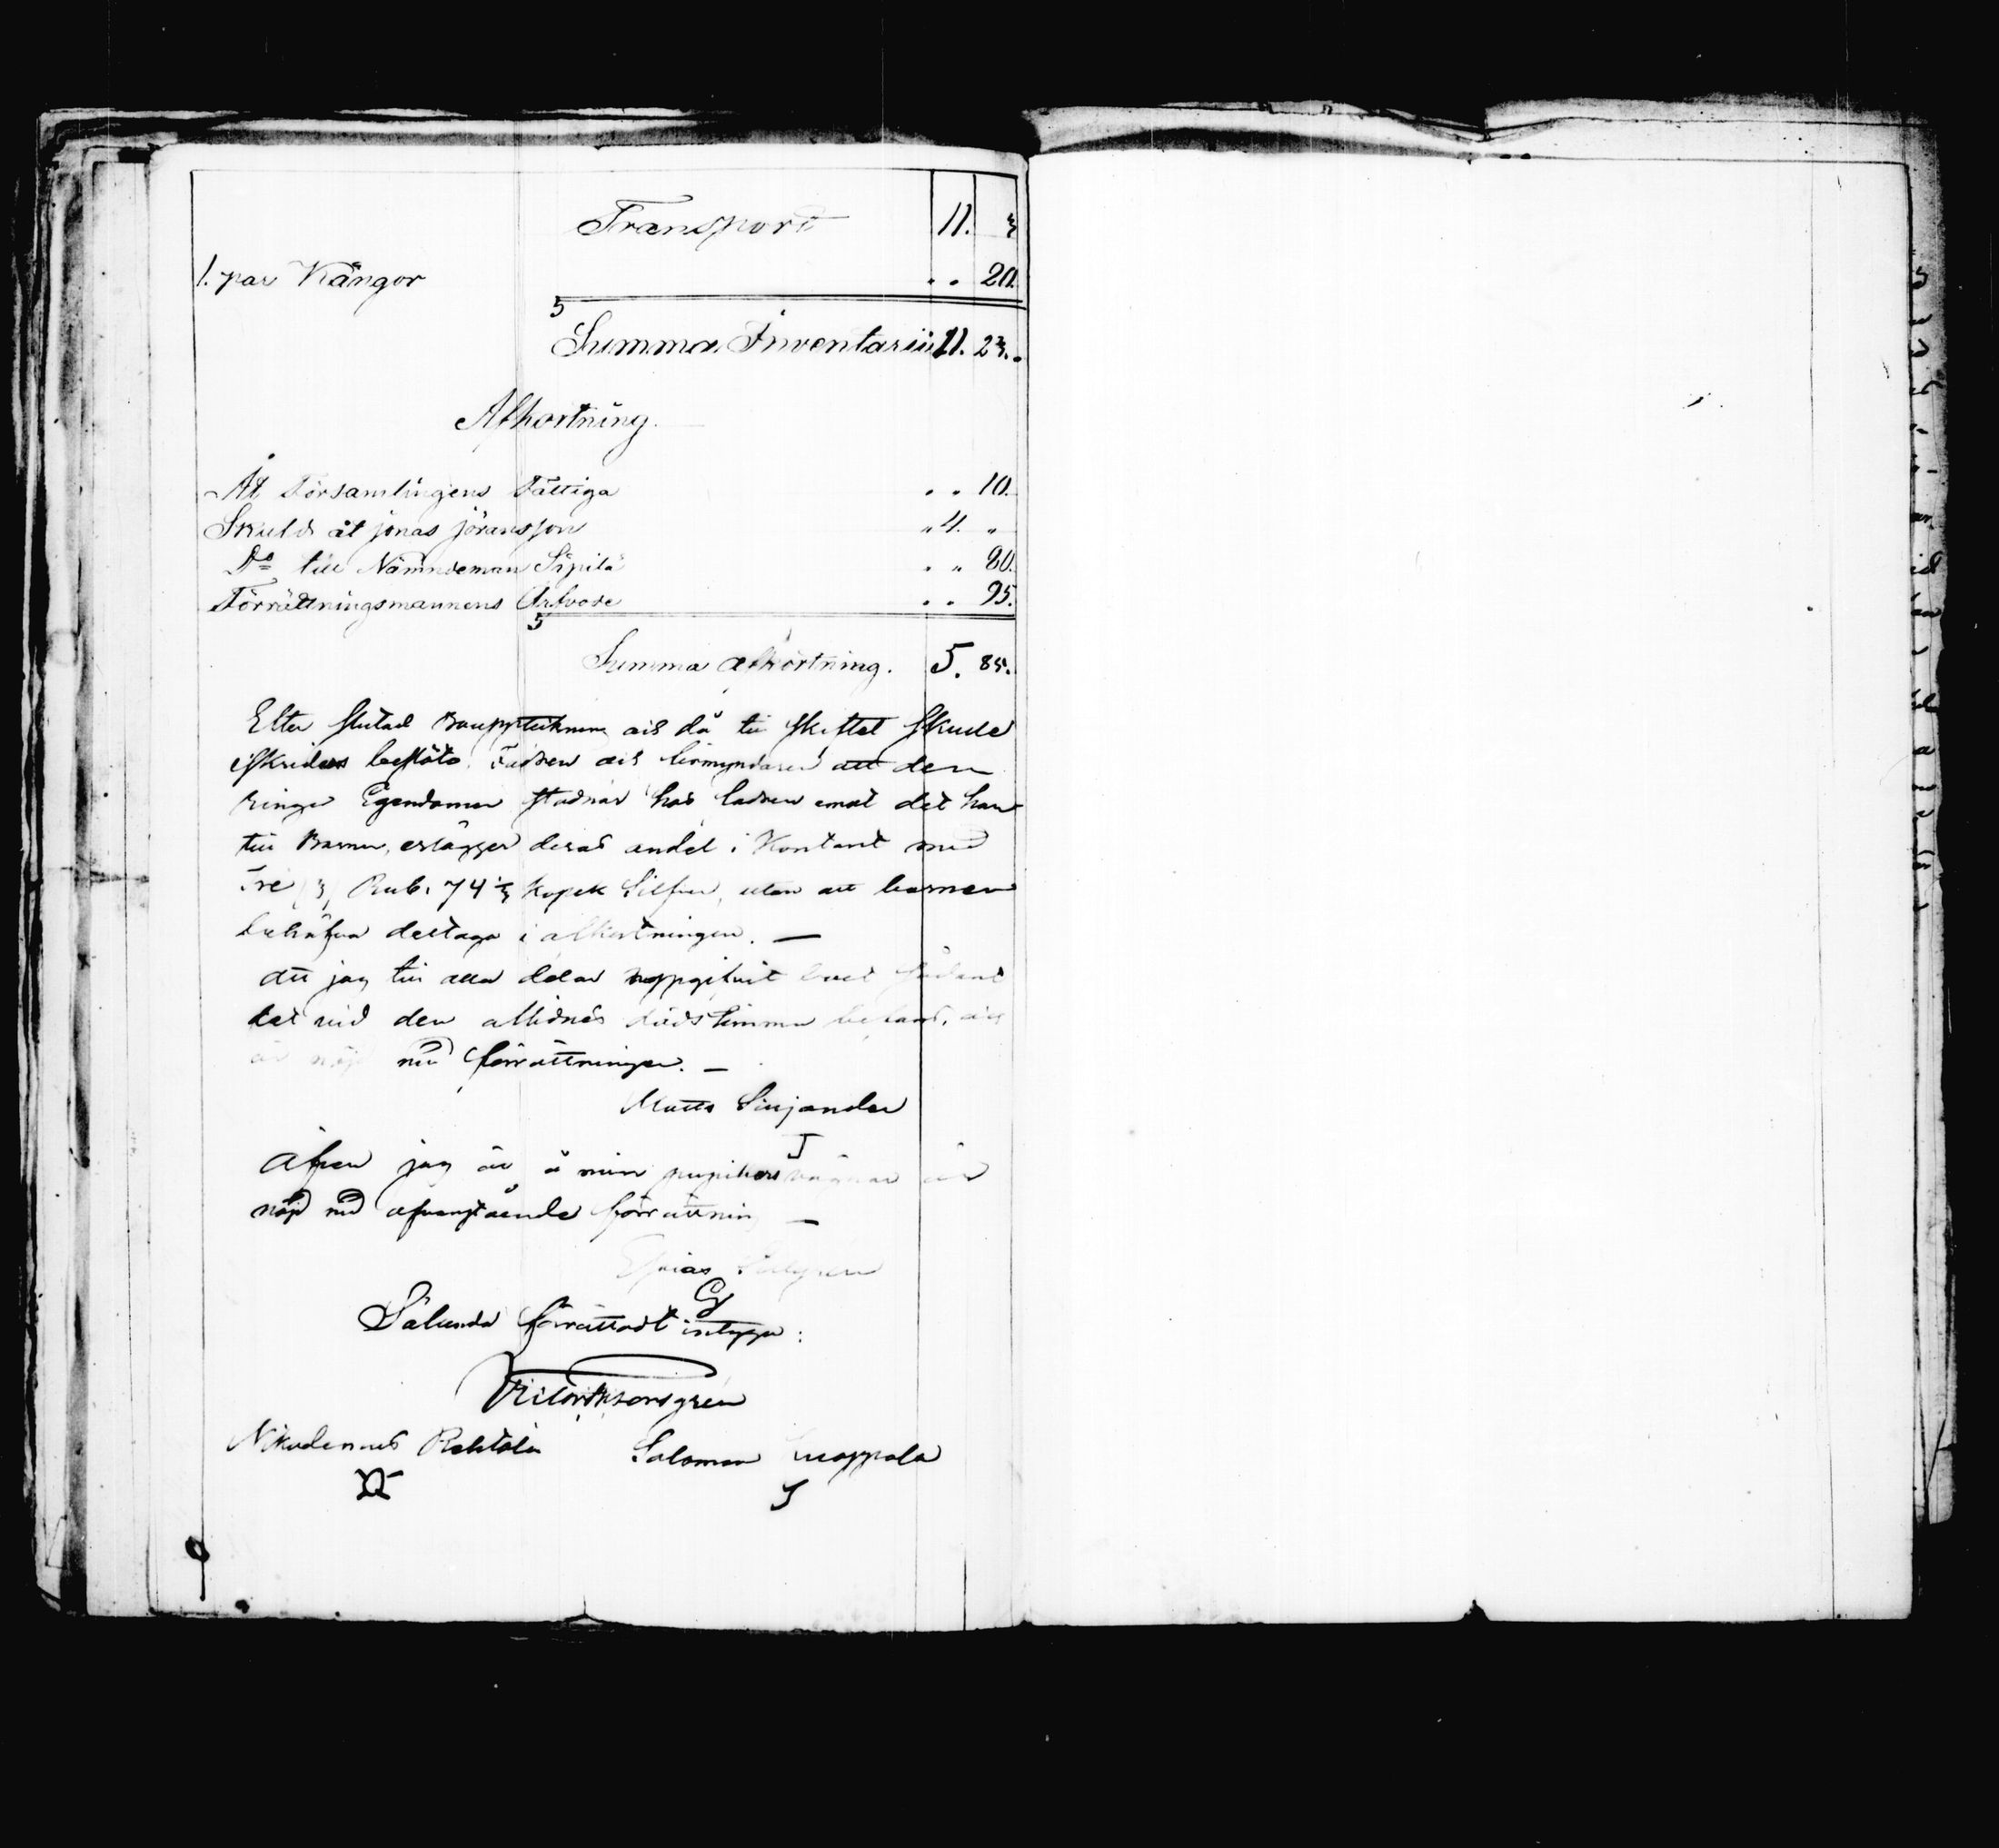 Transport 11. 3
1. par Kängor " " 20.
S
Summa Inventarii 11. 23.
Afkortning.
Åt Församlingens Fattiga " " 10.
Skuld åt jonas jöransson " 4. "
Do till Nämndeman Sipilä " " 80.
Förrättningsmannens Arfvode " " 95.
S
Summa afkortning. 5. 85.
Efter slutad Bouppteckning och då till skiftet skulle
skridas beslöto Fadren och förmyndaren att den
ringa Egendomen stadnar hos fadren emot det han
till Barnen, erlägger deras andel i Kontant med
Tre (3) Rub. 74 ½ kopek Silfver, utan att barnen
behöfva deltaga i afkortningen. —
Att jag till alla delar uppgifvit boet sådant
det vid den aflidnes dödstimma befans, och
är nöjd med förrättningen. —
Matts Siljander
Äfven jag är å mina pupillers vägnar
nöjd med ofvanstående förrättning —
Sålunda förrättadt intyga:
Nikodemus Rehtola Salomon Luoppala